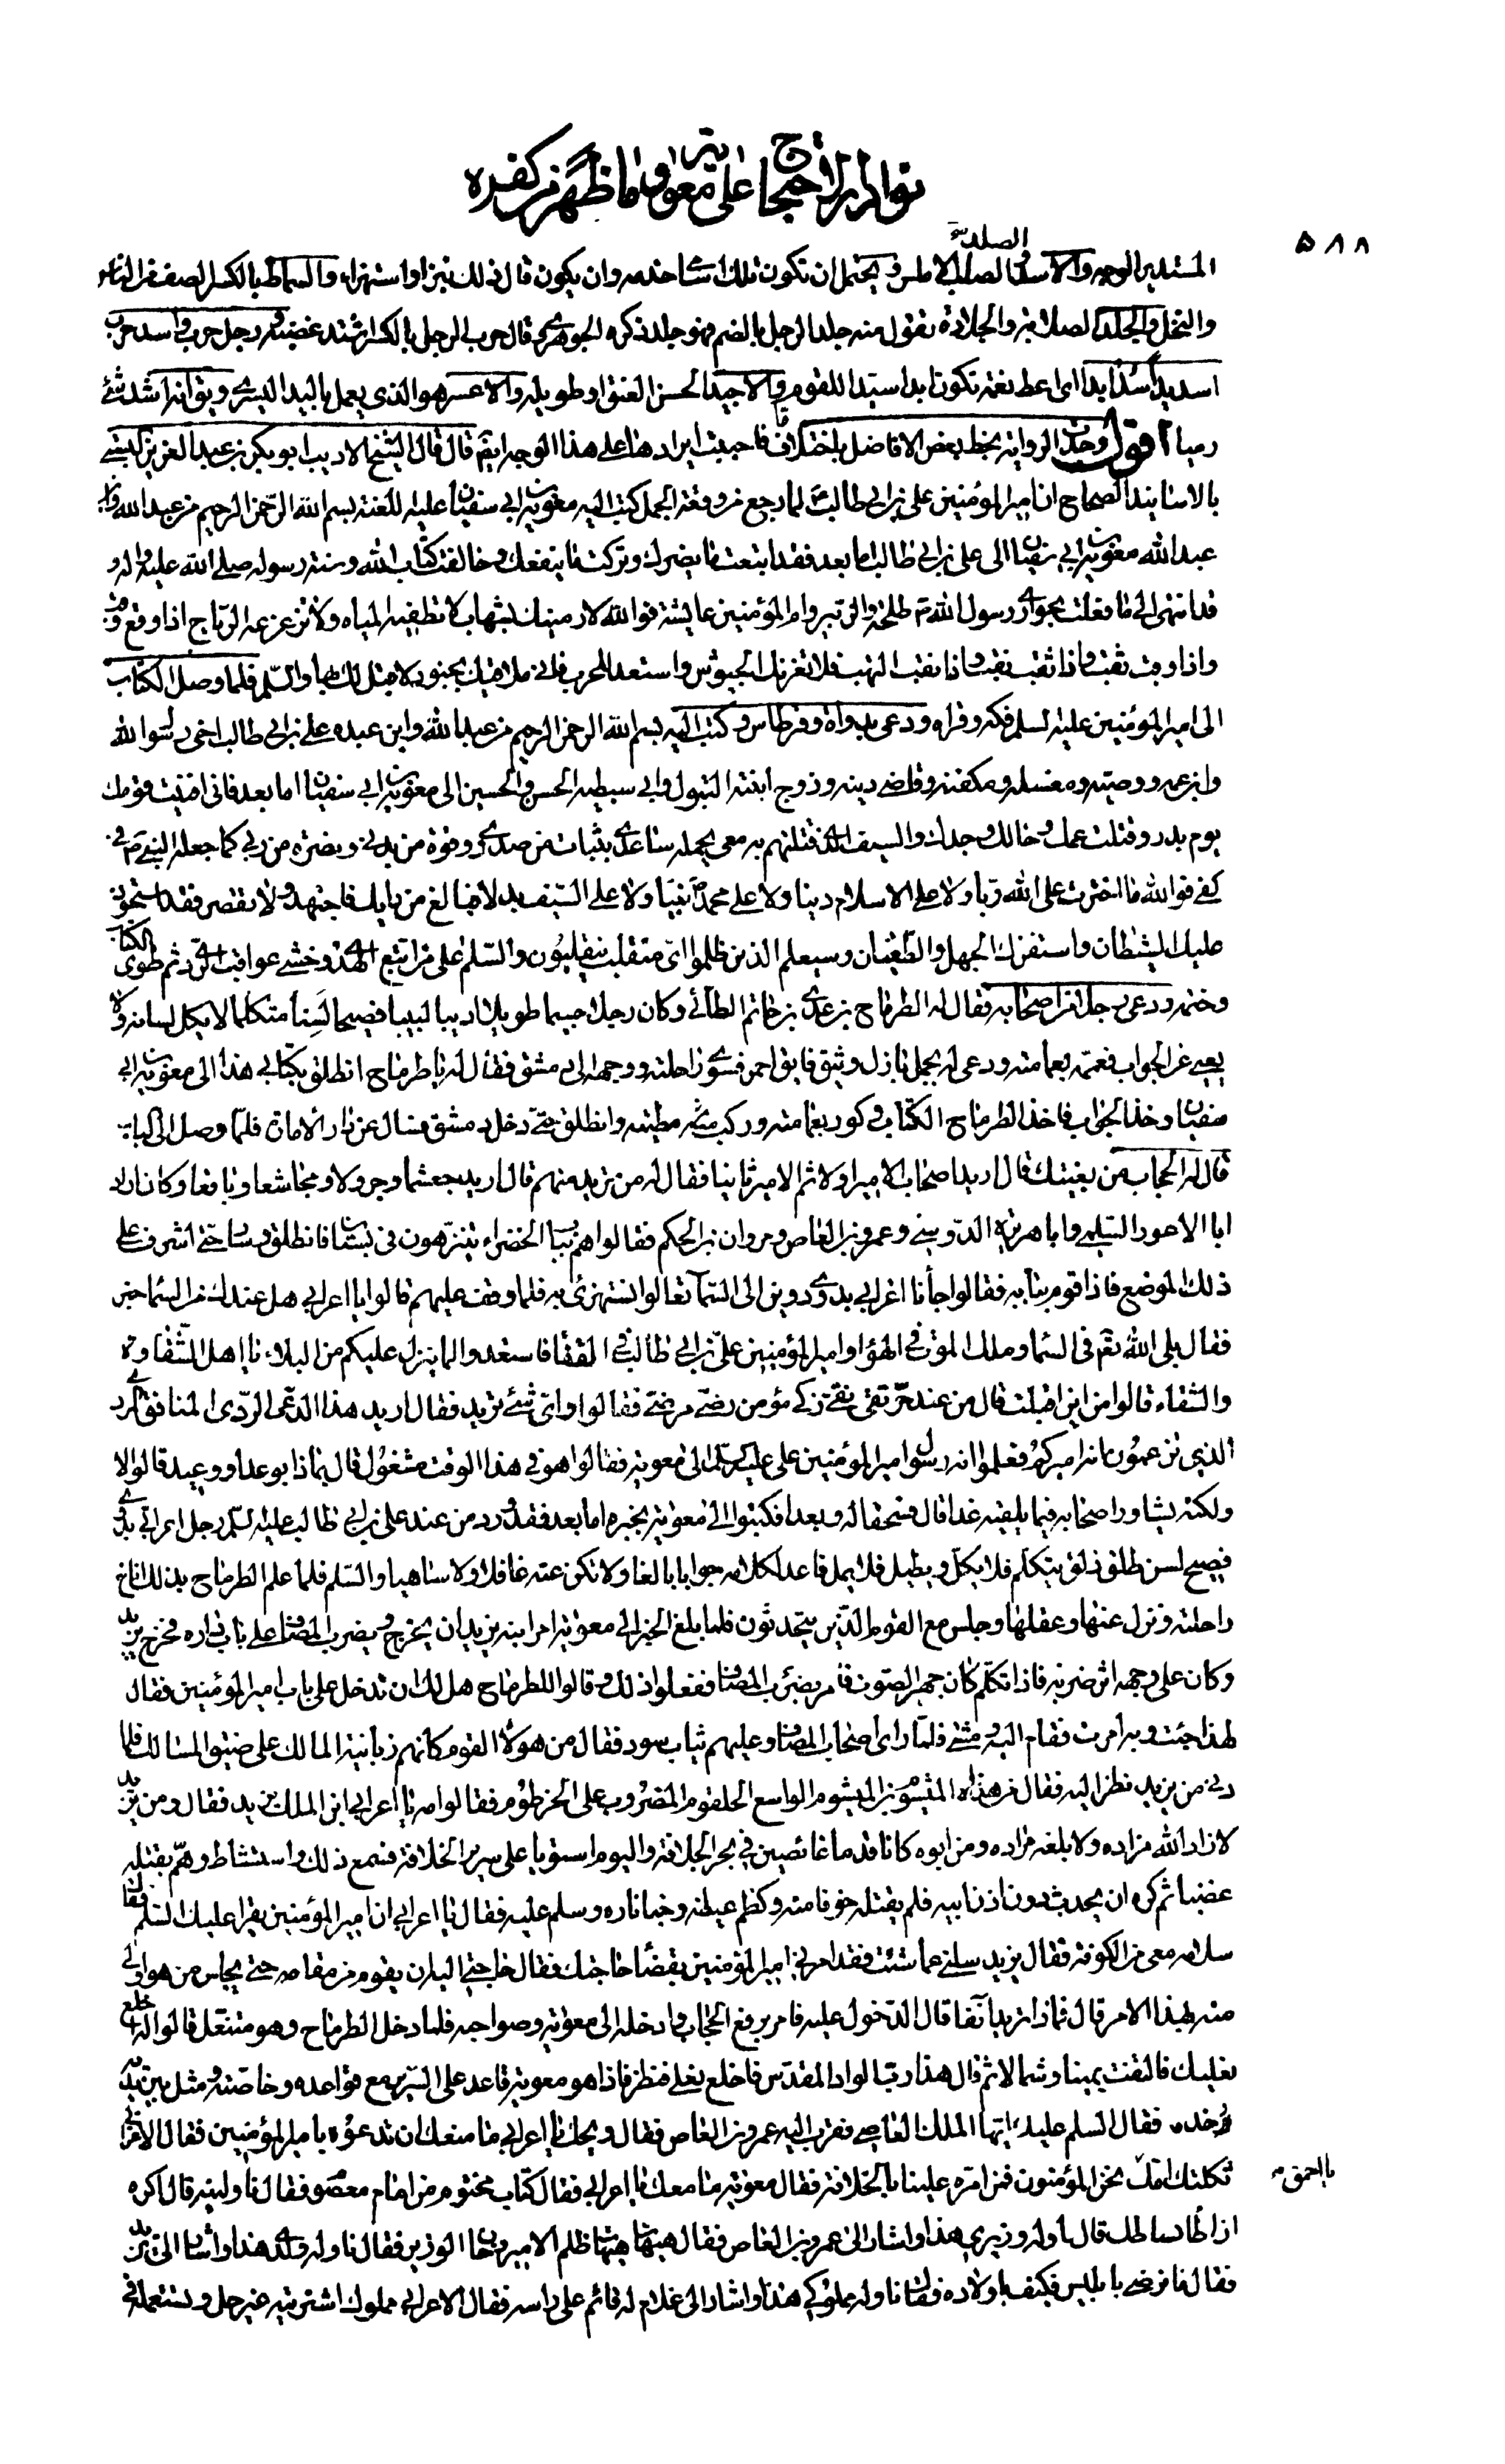 ۵۸۸
نوادر الاحتجاج على معوية وما ظهر من كفره
الصلد
المستدير الوجه والاسلق الصلب الاملس ويحتمل ان تكون تلك اسامي خدمه وان يكون قال ذلك نبزا واستهزاء والسماط بالكسر الصف من الناس
والنخل والجلد الصلابة والجلادة تقول منه جلد الرجل بالضم فهو جلد ذكره الجوهري وقال حرب الرجل بالكسر اشتد غضبه ورجل حرب واسد حرب
اسديدا سدا يدا اي اعط نعمة تكون يدا سيدا للقوم والاجيد الحسن العنق او طويله والاعسر هو الذي يعمل باليد اليسرى ويق انه اشد شئ
رميا اقول وجدت الرواية بخط بعض الافاضل باختلاف ما فاحببت ايرادها على هذا الوجه ايضا قال قال الشيخ الاديب ابو بكر بن عبد العزيز البستي
بالاسانيد الصحاح ان امير المؤمنين على بن ابي طالب ع لما رجع من وقعة الجمل كتب اليه معوية بن ابي سفيان عليه اللعنة بسم الله الرحمن الرحيم من عبد الله وابن
عبد الله معوية بن ابي سفيان الى علي بن ابي طالب اما بعد فقد اتبعت ما يضرك وتركت ما ينفعك وخالفت كتاب الله وسنة رسوله صلى الله عليه واله و
قد انتهى الي ما فعلت بحواري رسول الله ص طلحة والزبير وام المؤمنين عايشة فوالله لارمينك بشهاب لا تطفيه المياه ولا تزعزعه الرياح اذا وقع وقب
واذا وقب ثقب واذا ثقب نقب واذا نقب التهب فلا تغرنك الجيوش واستعد للحرب فاني ملاقيك بجنود لا قبل لك بها والسلم فلما وصل الكتاب
الى امير المؤمنين عليه السلم فكه وقراه ودعى بدواة وقرطاس وكتب اليه بسم الله الرحمن الرحيم من عبد الله وابن عبده علي بن ابي طالب اخي رسول الله
وابن عمه ووصيه ومغسله ومكفنه وقاضي دينه وزوج ابنته البتول وابي سبطيه الحسن والحسين الى معوية بن ابي سفيان اما بعد فاني افنيت قومك
يوم بدر وقتلت عمك وخالك وجدك والسيف الذي قتلتهم به معي يحمله ساعدي بثبات من صدري وقوة من بدني ونصرة من ربي كما جعله النبي ص في
كفي فوالله ما اخترت على الله ربا ولا على الاسلام دينا ولا على محمد ص نبيا ولا على السيف بدلا فبالغ من رايك فاجتهد ولا تقصر فقد استحوذ
عليك الشيطان واستفزك الجهل والطغيان وسيعلم الذين ظلموا اي منقلب ينقلبون والسلم على من اتبع الهدى وخشي عواقب الردى ثم طوى الكتاب
وختمه ودعى رجلا من اصحابه فقال له الطرماح بن عدي بن حاتم الطائي وكان رجلا جسيما طويلا اديبا لبيبا فصيحا لسنا متكلما لا يكل لسانه ولا
يعيى عن الجواب فعممه بعمامته ودعى له بجمل بازل وثيق فايق احمر فسوى راحلته ووجهه الى دمشق فقال له يا طرماح انطلق بكتابي هذا الى معوية بن ابي
سفيان وخذ الجواب فاخذ الطرماح الكتاب وكور بعمامته وركب مطيته وانطلق حتى دخل دمشق فسال عن دار الامارة فلما وصل الى الباب
قال له الحجاب من بغيتك قال اريد اصحاب الامير اولا ثم الامير ثانيا فقال له من تريد منهم قال اريد جعشما وجرولا ومجاشعا وباقعا وكان اراد
ابا الاعور السلمي وابا هريرة الدوسي وعمرو بن العاص ومروان بن الحكم فقالوا هم بباب الخضراء يتنزهون في بستان فانطلق وسار حتى اشرف على
ذلك الموضع فاذا قوم ببابه فقالوا جأنا اعرابي بدوي دوين الى السماء تعالوا نستهزئ به فلما وقف عليهم قالوا يا اعرابي هل عندك من السماء خبر
فقال بلى الله تعالى في السماء وملك الموت في الهواء وامير المؤمنين علي بن ابي طالب في القفا فاستعدوا لما ينزل عليكم من البلاء يا اهل الشقاوة
والشقاء قالوا من اين اقبلت قال من عند حر تقي نقي زكي مؤمن رضي مرضي فقالوا واي شئ تريد فقال اريد هذا الدعي الردي المنافق المردي
الذي تزعمون انه اميركم فعلموا انه رسول امير المؤمنين علي عليه السلم الى معوية فقالوا هو في هذا الوقت مشغول قال بماذا بوعد او وعيد قالوا لا
ولكنه يشاور اصحابه فيما يلقيه غدا قال فسحقا له وبعدا فكتبوا الى معوية بخبره اما بعد فقد ورد من عند علي بن ابي طالب عليه السلم رجل اعرابي بدوي
فصيح لسن طلق ذلق يتكلم فلا يكل ويطيل فلا يمل فاعد لكلامه جوابا بالغا ولا تكن عنه غافلا ولا ساهيا والسلم فلما علم الطرماح بذلك اناخ
راحلته ونزل عنها وعقلها وجلس مع القوم الذين يتحدثون فلما بلغ الخبر الى معوية امر ابنه يزيد ان يخرج ويضرب المصاف على باب داره فخرج يزيد
وكان على وجهه اثر ضربة فاذا تكلم كان جهير الصوت فامر بضرب المصاف ففعلوا ذلك وقالوا للطرماح هل لك ان تدخل على باب امير المؤمنين فقال
لهذا جئت وبه امرت فقام اليه ومشى فلما راى اصحاب المصاف وعليهم ثياب سود فقال من هؤلاء القوم كانهم زبانية المالك على ضيق المسالك فلما
دنى من يزيد نظر اليه فقال من هذا الميشوم بن الميشوم الواسع الحلقوم المضروب على الخرطوم فقالوا مه يا اعرابي ابن الملك يزيد فقال ومن يزيد
لا زاد الله مزاده ولا بلغه مراده ومن ابوه كانا قدما غائصين في بحر الجلافة واليوم استويا على سرير الخلافة فسمع ذلك واستشاط وهم بقتله
غضبا ثم كره ان يحدث دون اذن ابيه فلم يقتله خوفا منه وكظم غيظه وخبا ناره وسلم عليه فقال يا اعرابي ان امير المؤمنين يقرأ عليك السلم فقال
سلامه معي من الكوفة فقال يزيد سلني عما شئت فقد امرني امير المؤمنين بقضاء حاجتك فقال حاجتي اليه ان يقوم من مقامه حتى يجلس من هو اولى
منه بهذا الامر قال فماذا تريد آنفا قال الدخول عليه فامر برفع الحجاب وادخله الى معوية وصواحبه فلما دخل الطرماح وهو متنعل قالوا له اخلع
نعليك فالتفت يمينا وشمالا ثم قال هذا رب الواد المقدس فاخلع نعلي فنظر فاذا هو معوية قاعد على السرير مع قواعده وخاصته ومثل بين يديه
خدمه فقال السلم عليك ايها الملك العاصي فقرب اليه عمرو بن العاص فقال ويحك يا اعرابي ما منعك ان تدعوه يا امير المؤمنين فقال الاعرابي
ثكلتك امك يا احمق نحن المؤمنون فمن امره علينا بالخلافة فقال معوية ما معك يا اعرابي فقال كتاب مختوم من امام معصوم فقال ناولنيه قال اكره
ان اطأ بساطك قال ناوله وزيري هذا واشار الى عمرو بن العاص فقال هيهات هيهات ظلم الامير وخان الوزير فقال ناوله ولدي هذا واشار الى يزيد
فقال ما نرضى بابليس فكيف باولاده فقال ناوله مملوكي هذا واشار الى غلام له قائم على راسه فقال الاعرابي مملوك اشتريته من غير حل وتستعمله في